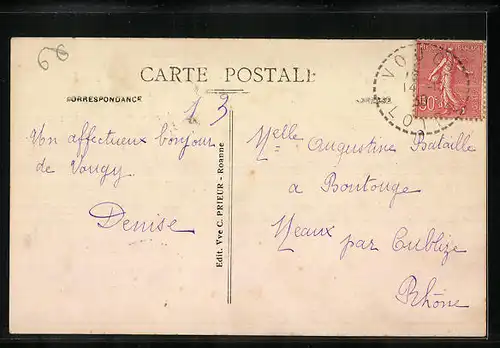 66
CARTE POSTALE
CORRESPONDANCE
13
Un affectueux bonjour
de Vougy
Denise
Edit. Vve C. PRIEUR - Roanne
Melle Augustine Bataille
à Boutouge
Meaux par Cublize
Rhône
VOU
14
LOI
50